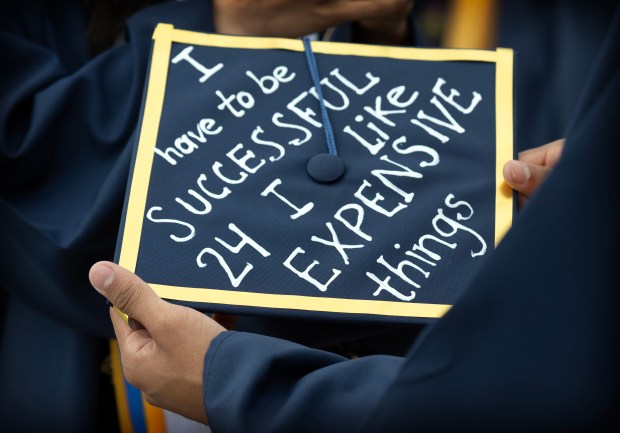 I
have to be
SUCCESSFUL
24 I Like
EXPENSIVE
things